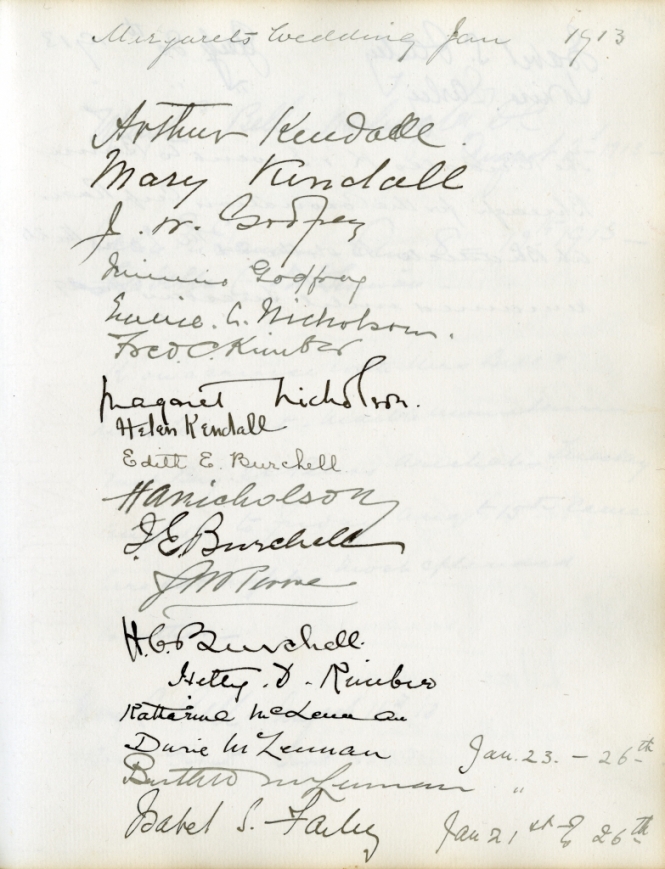 Margarets Wedding Jan 1913
Arthur Kendall.
Mary Kendall
J. W. Godfrey
Godfrey
C. Nicholson.
Fred. C. Kimber
Margaret Nicholson.
Helen Kendall
Edith E. Burchell.
H A Nicholson
J. E. Burchell
H. C. Burchell.
Hetty. D. Kimber
Katharine McLennan
Durie McLennan Jan. 23. - 26th
McLennan "
Isabel S. Farley Jan 21st to 26th